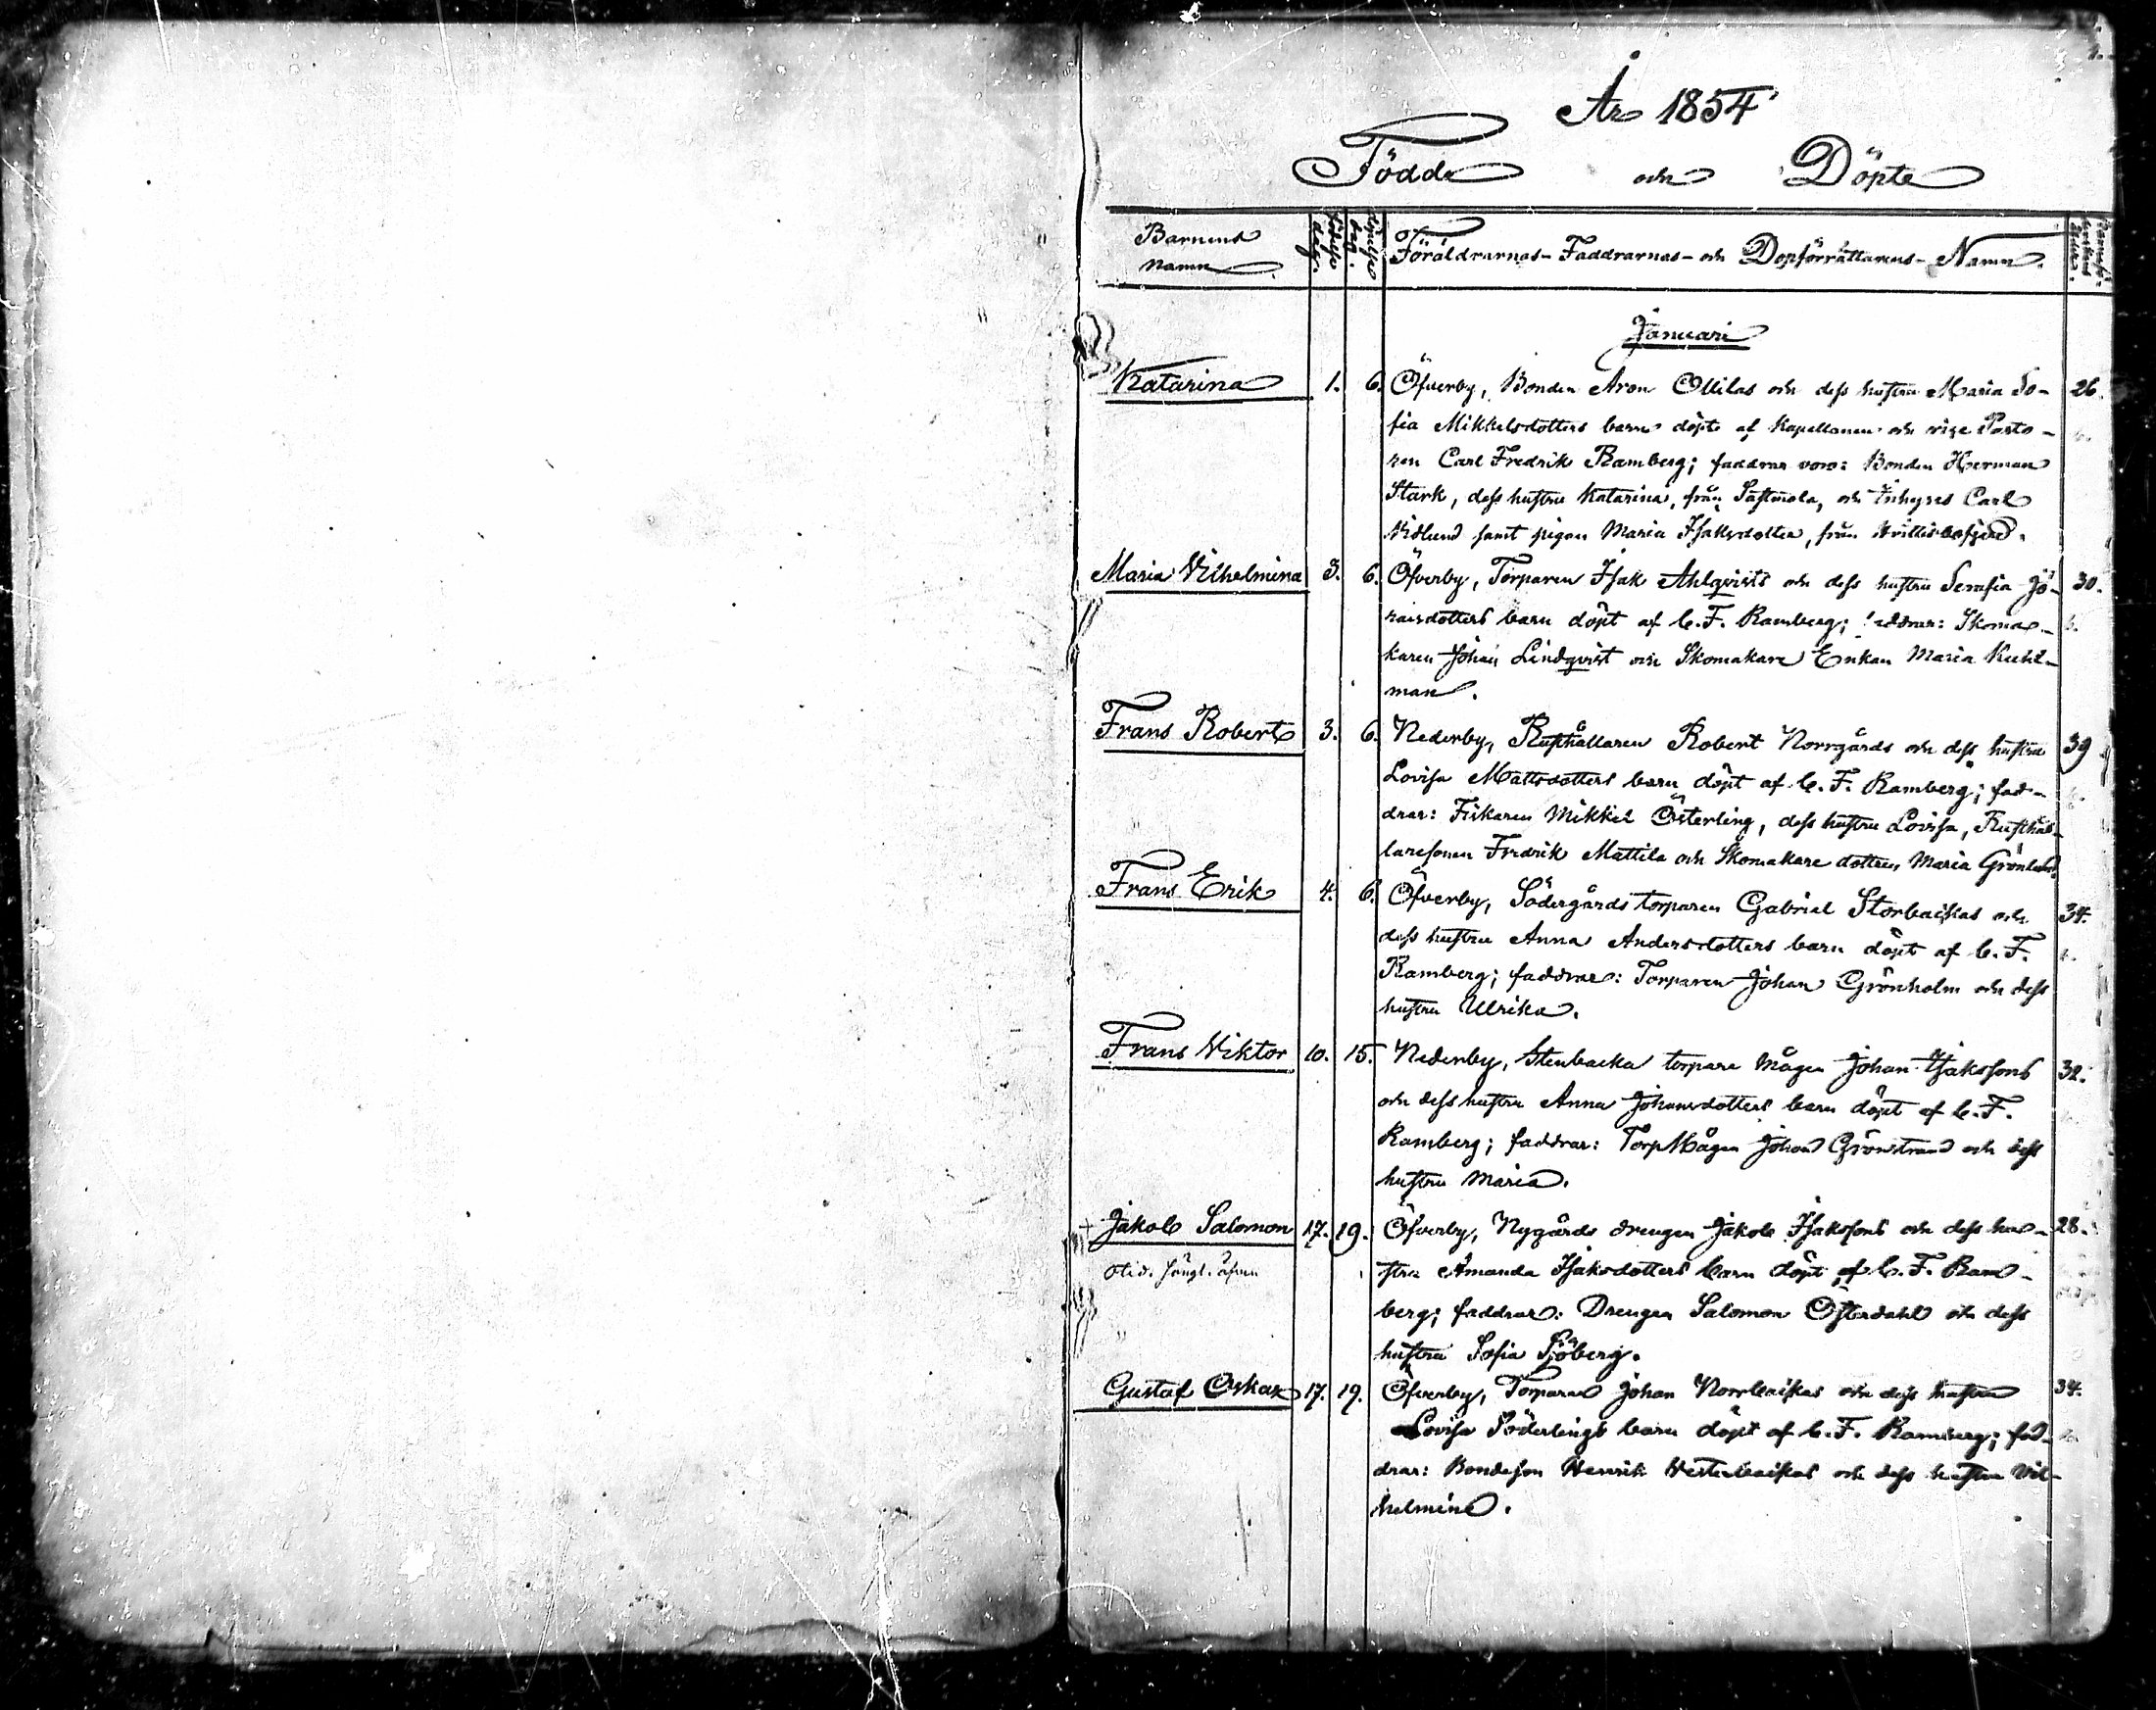 1.
År 1854
Födde och Döpte
Barnens Namn Födelse dag. Döpelse dag. Föräldrarnas- Faddrarnas- och Dopförrättarens- Namn.
Januari
Katarina 1. 6. Öfverby, Bonden Aron Ollilas och dess hustru Maria So- 26.
fia Mikkelsdotters barn döpt af Kapellanen och vice Pasto-
ren Carl Fredrik Ramberg; faddrar voro: Bonden Herman
Stark, dess hustru Katarina, från och Inhyses Carl
Vidlund samt pigan Maria Isaksdotter, från
Maria Vilhelmina 3. 6. Öfverby, Torparen Isak Ahlqvists och dess hustru Serafia Jö- 30.
ransdotters barn döpt af C. F. Ramberg; faddrar: Skoma-
karen Johan Lindqvist och Skomakare Enkan Maria Kuhl-
man.
Frans Robert 3. 6. Nederby, Rusthållaren Robert Norrgårds och dess hustru 39
Lovisa Mattsdotters barn döpt af C. F. Ramberg; fad-
drar: Fiskaren Mikkel Österling, dess hustru Lovisa, Rusthål-
laresonen Fredrik Mattila och Skomakare dottren Maria Grönlund.
Frans Erik 4. 6. Öfverby, Södergårds torparen Gabriel Storbackas och 34.
dess hustru Anna Andersdotters barn döpt af C. F.
Ramberg; faddrar: Torparen Johan Grönholm och dess
hustru Ulrika.
Frans Viktor 10. 15. Nederby, Stenbacka torpare mågen Johan Isakssons 32.
och dess hustru Anna Johansdotters barn döpt af C. F.
Ramberg; faddrar: Torp Mågen Johan Grönstrand och dess
hustru Maria.
+ Jakob Salomon 17. 19. Öfverby, Nygårds drengen Jakob Isakssons och dess hu- 28.
stru Amanda Isaksdotters barn döpt af C. F. Ram-
berg; faddrar: Drengen Salomon Österdahl och dess
hustru Sofia Sjöberg.
Gustaf Oskar 17. 19. Öfverby, Torparen Johan Norrbackas och dess hustru 34.
Lovisa Söderlings barn döpt af C. F. Ramberg; fad-
drar: Bondeson Henrik Westerbackas och dess hustru Vil-
helmina.